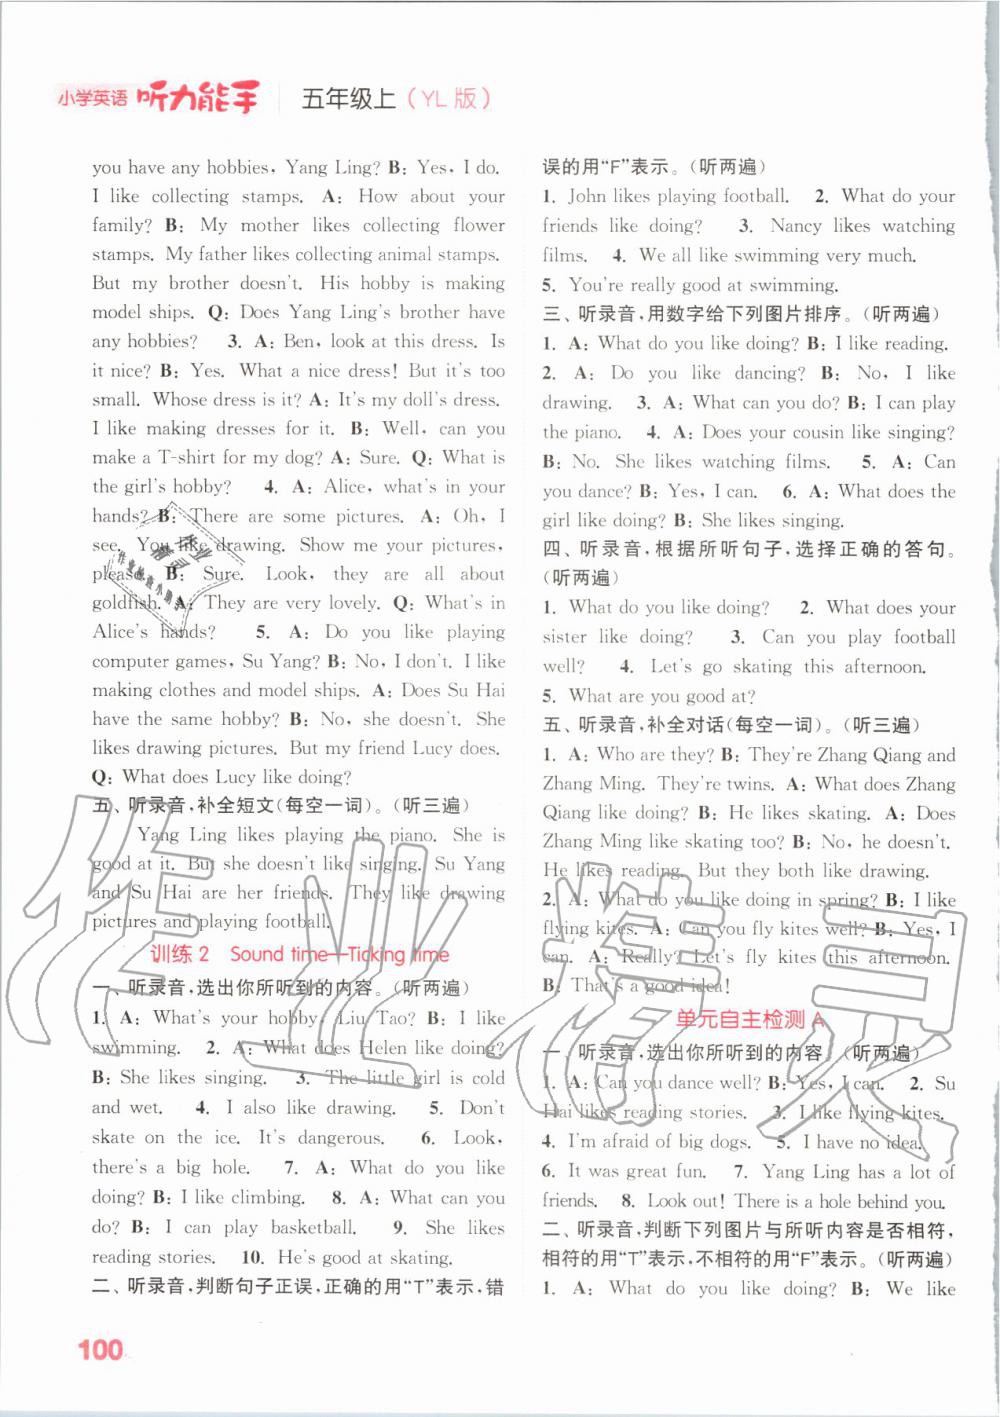 小学英语 听力能手 五年级上（YL版）
you have any hobbies, Yang Ling? B: Yes, I do.
I like collecting stamps. A: How about your
family? B: My mother likes collecting flower
stamps. My father likes collecting animal stamps.
But my brother doesn't. His hobby is making
model ships. Q: Does Yang Ling's brother have
any hobbies? 3. A: Ben, look at this dress. Is
it nice? B: Yes. What a nice dress! But it's too
small. Whose dress is it? A: It's my doll's dress.
I like making dresses for it. B: Well, can you
make a T-shirt for my dog? A: Sure. Q: What is
the girl's hobby? 4. A: Alice, what's in your
hands? B: There are some pictures. A: Oh, I
see. You like drawing. Show me your pictures,
please. B: Sure. Look, they are all about
goldfish. A: They are very lovely. Q: What's in
Alice's hands? 5. A: Do you like playing
computer games, Su Yang? B: No, I don't. I like
making clothes and model ships. A: Does Su Hai
have the same hobby? B: No, she doesn't. She
likes drawing pictures. But my friend Lucy does.
Q: What does Lucy like doing?
五、听录音,补全短文(每空一词)。(听三遍)
Yang Ling likes playing the piano. She is
good at it. But she doesn't like singing. Su Yang
and Su Hai are her friends. They like drawing
pictures and playing football.
训练2 Sound time—Ticking time
一、听录音,选出你所听到的内容。(听两遍)
1. A: What's your hobby, Liu Tao? B: I like
swimming. 2. A: What does Helen like doing?
B: She likes singing. 3. The little girl is cold
and wet. 4. I also like drawing. 5. Don't
skate on the ice. It's dangerous. 6. Look,
there's a big hole. 7. A: What do you like
doing? B: I like climbing. 8. A: What can you
do? B: I can play basketball. 9. She likes
reading stories. 10. He's good at skating.
二、听录音,判断句子正误,正确的用“T”表示,错
误的用“F”表示。(听两遍)
1. John likes playing football. 2. What do your
friends like doing? 3. Nancy likes watching
films. 4. We all like swimming very much.
5. You're really good at swimming.
三、听录音,用数字给下列图片排序。(听两遍)
1. A: What do you like doing? B: I like reading.
2. A: Do you like dancing? B: No, I like
drawing. 3. A: What can you do? B: I can play
the piano. 4. A: Does your cousin like singing?
B: No. She likes watching films. 5. A: Can
you dance? B: Yes, I can. 6. A: What does the
girl like doing? B: She likes singing.
四、听录音,根据所听句子,选择正确的答句。
(听两遍)
1. What do you like doing? 2. What does your
sister like doing? 3. Can you play football
well? 4. Let's go skating this afternoon.
5. What are you good at?
五、听录音,补全对话(每空一词)。(听三遍)
1. A: Who are they? B: They're Zhang Qiang and
Zhang Ming. They're twins. A: What does Zhang
Qiang like doing? B: He likes skating. A: Does
Zhang Ming like skating too? B: No, he doesn't.
He likes reading. But they both like drawing.
2. A: What do you like doing in spring? B: I like
flying kites. A: Can you fly kites well? B: Yes, I
can. A: Really? Let's fly kites this afternoon.
B: That's a good idea!
单元自主检测A
一、听录音,选出你所听到的内容。(听两遍)
1. A: Can you dance well? B: Yes, I can. 2. Su
Hai likes reading stories. 3. I like flying kites.
4. I'm afraid of big dogs. 5. I have no idea.
6. It was great fun. 7. Yang Ling has a lot of
friends. 8. Look out! There is a hole behind you.
二、听录音,判断下列图片与所听内容是否相符,
相符的用“T”表示,不相符的用“F”表示。(听两遍)
1. A: What do you like doing? B: We like
100
作业精灵